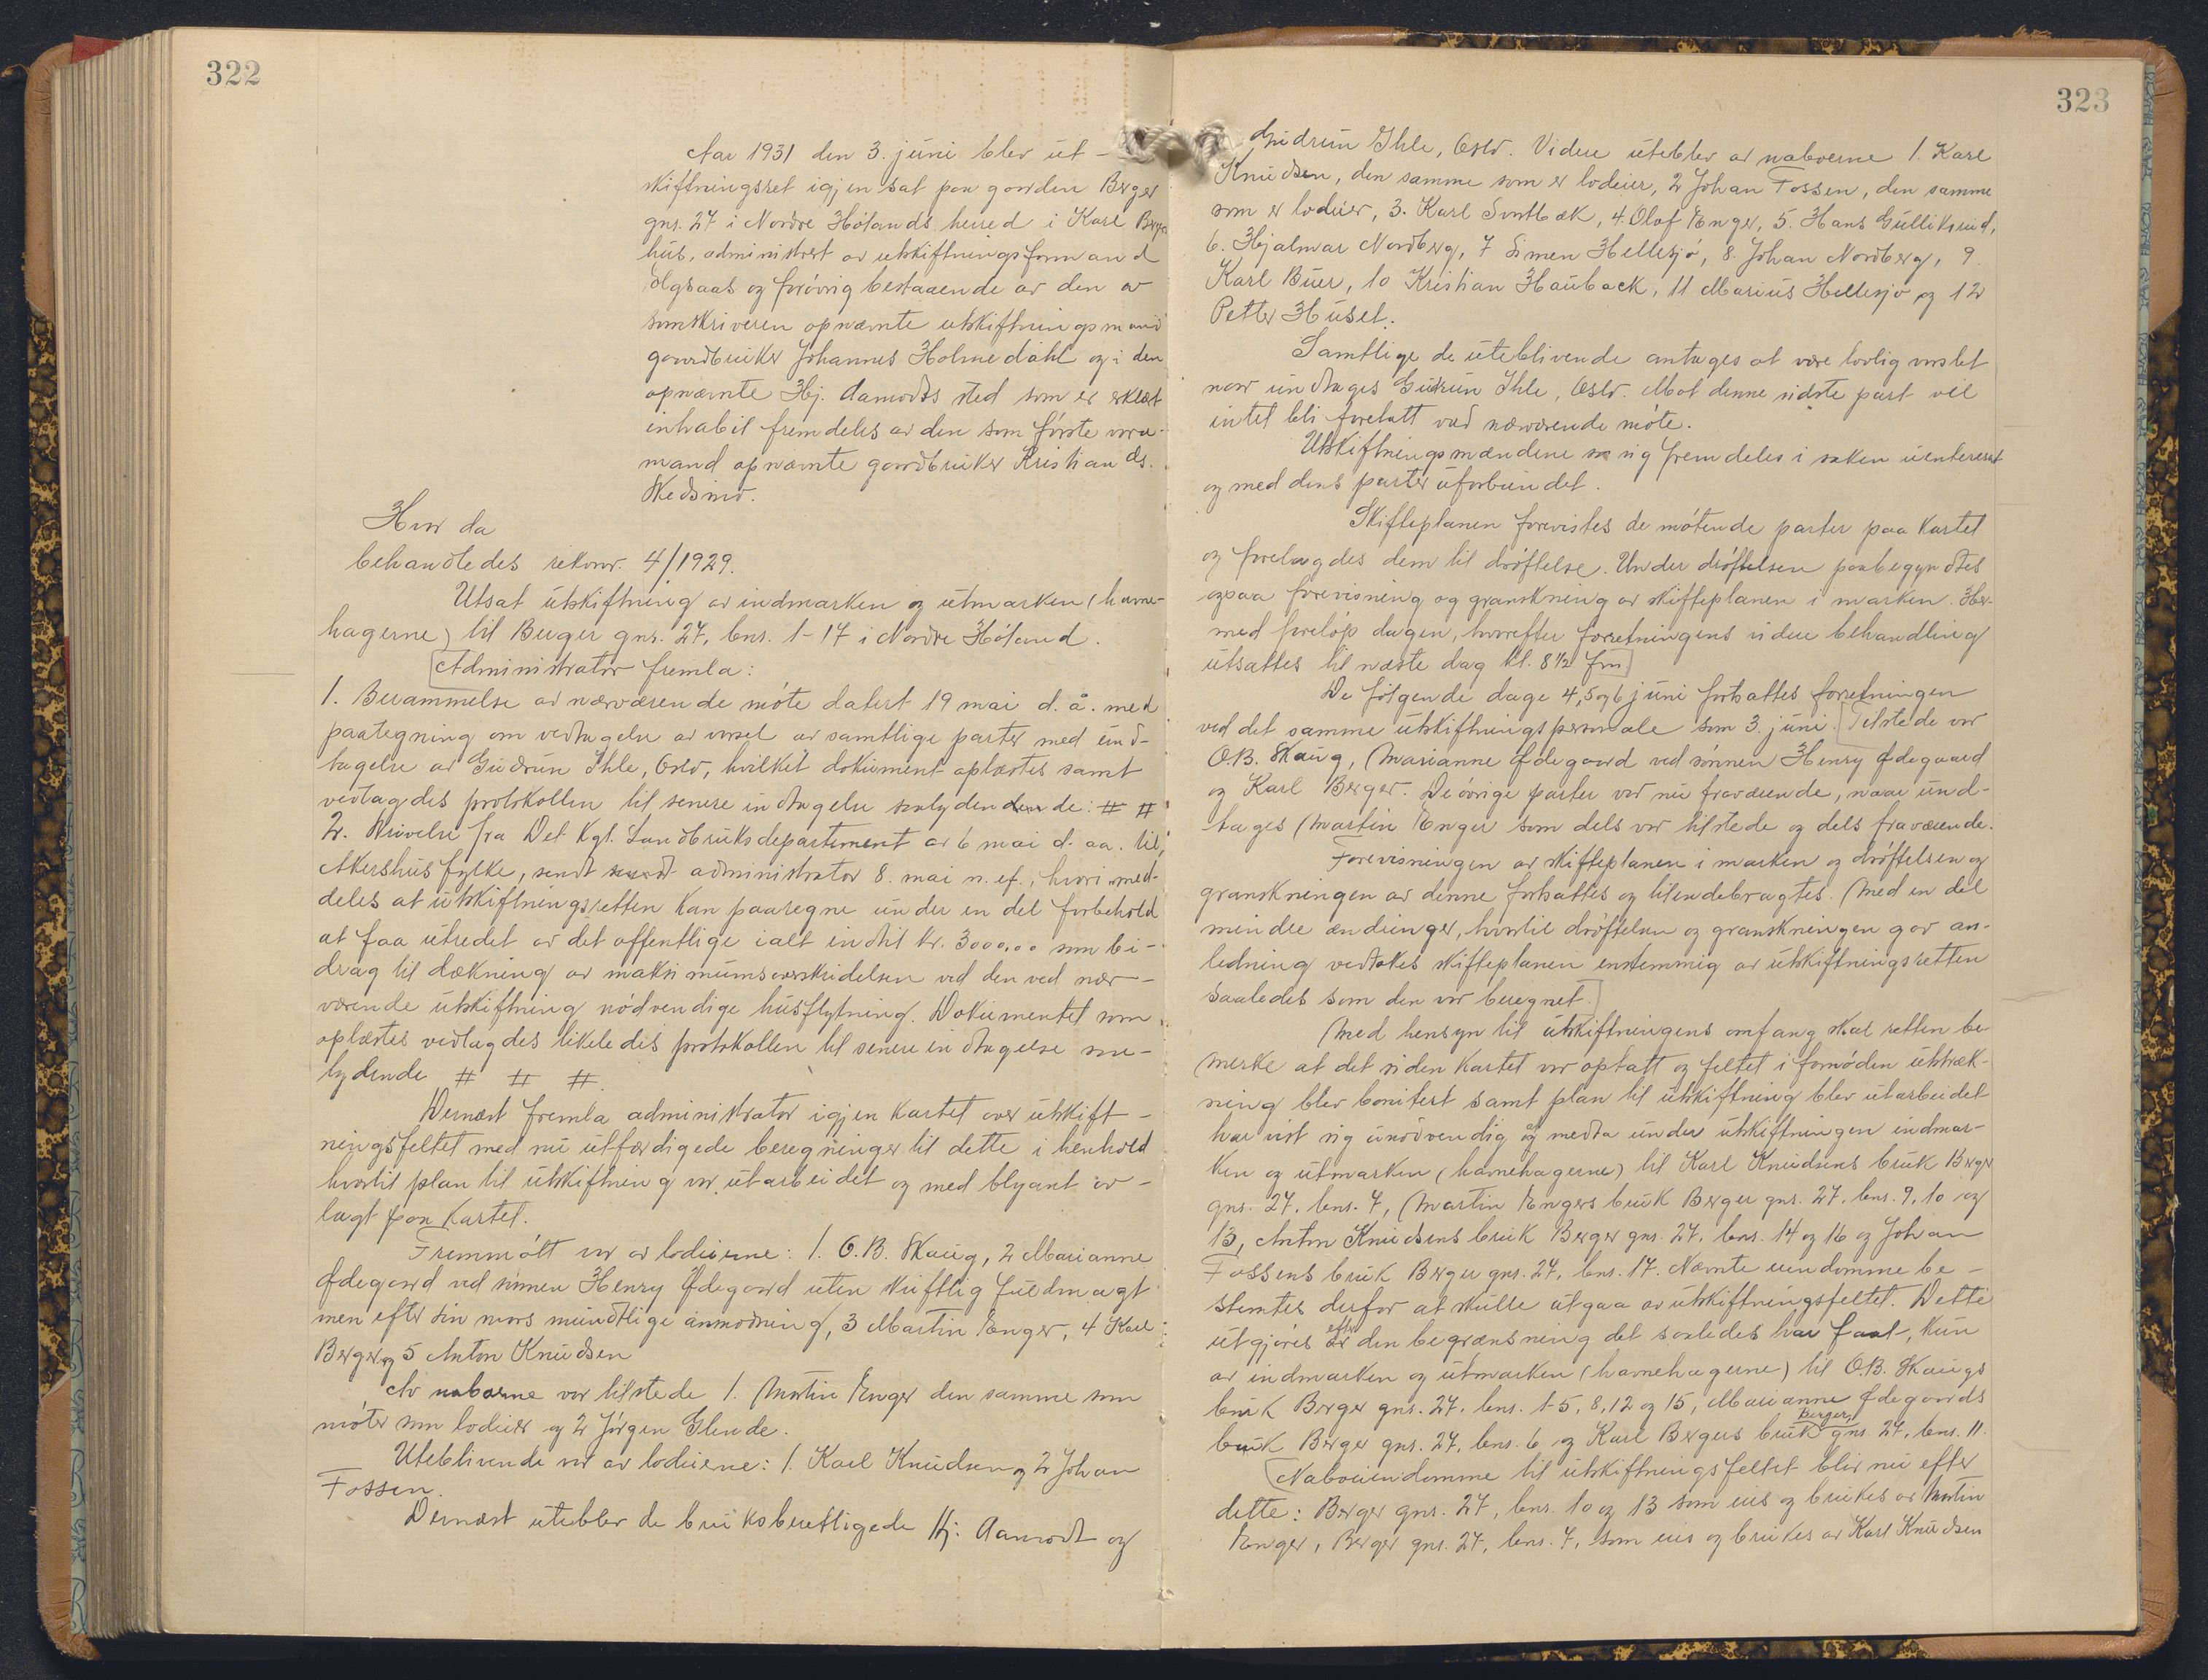 322
Aar 1931 den 3. juni blev ut-
skiftningsret igjen sat paa gaarden Berger
gnr. 27 i Nordre Hölands herred i Karl Bergers
hus, administrert av utskiftningsformand
Elgsaas og forövrig bestaaende av den av
sorenskriveren opnævnte utskiftningsmand
gaardbruker Johannes Holmedahl og i den
opnævnte Hj. Aamodts sted som er erklært
inhabil fremdeles av den som förste vara-
mand opnævnte gaardbruker Kristian As.
Skedsmo.
Hvor da
behandledes rekvnr. 4/1929.
Utsat utskiftning av indmarken og utmarken (havne-
hagerne) til Berger gnr. 27, bnr. 1-17 i Nordre Höland.
Administrator fremla:
1. Berammelse av nærværende möte datert 19 mai d. å. med
paategning om vedtagelse av varsel av samtlige parter med und-
tagelse av Gudrun Ihle, Oslo, hvilket dokument oplæstes samt
vedlagdes protokollen til senere indtagelse saalydende: # #
2. Skrivelse fra Det Kgl. Landbruksdepartement av 6 mai d. aa. til
Akershus fylke, sendt administrator 8. mai n. ef., hvori med-
deles at utskiftningsretten kan paaregne under en del forbehold
at faa utredet av det offentlige ialt indtil kr. 3000,00 som bi-
drag til dækning av maksimumsoverskridelsen ved den ved nær-
værende utskiftning nödvendige husflytning. Dokumentet som
oplæstes vedlagdes likeledes protokollen til senere indtagelse saa-
lydende # # #.
Dernæst fremla administrator igjen kartet over utskift-
ningsfeltet med nu utfærdigede beregninger til dette i henhold
hvortil plan til utskiftning var utarbeidet og med blyant av-
lagt paa kartet.
Fremmött var av lodeierne: 1. O.B. Skaug, 2 Marianne
Ødegaard ved sönnen Henry Ødegaard uten skriftlig fuldmagt
men efter sin mors mundtlige anmodning, 3 Martin Enger, 4 Karl
Berger og 5 Anton Knudsen
Av naboerne var tilstede 1. Martin Enger den samme som
möter som lodeier og 2 Jörgen Glende.
Uteblivende var av lodeierne: 1. Karl Knudsen og 2 Johan
Fossen.
Dernæst uteblev de bruksberettigede Hj. Aamodt og
323
Gudrun Ihle, Oslo. Videre uteblev av naboerne 1. Karl
Knudsen, den samme som er lodeier, 2 Johan Fossen, den samme
som er lodeier, 3. Karl Svartbæk, 4. Olaf Enger, 5. Hans Gulliksrud,
6. Hjalmar Nordberg, 7 Simen Hellesjö, 8. Johan Nordberg, 9
Karl Buer, 10 Kristian Hauback, 11 Marius Hellesjö og 12
Petter Huset.
Samtlige de uteblivende antages at være lovlig varslet
naar undtages Gudrun Ihle, Oslo. Mot denne sidste part vil
intet bli foretatt ved nærværende möte.
Utskiftningsmændene sa sig fremdeles i saken uinteressert
og med dens parter uforbundet.
Skifteplanen forevistes de mötende parter paa kartet
og forelagdes dem til dröftelse. Under dröftelsen paabegyndtes
ogsaa forevisning og granskning av skifteplanen i marken. Her-
med forelöp dagen, hvorefter forretningens videre behandling
utsattes til næste dag kl. 8 1/2 fm
De fölgende dage 4, 5 og 6 juni fortsattes forretningen
ved det samme utskiftningspersonale som 3. juni. Tilstede var
O.B. Skaug, Marianne Ødegaard ved sönnen Henry Ødegaard
og Karl Berger. De övrige parter var nu fraværende, naar und-
tages Martin Enger som dels var tilstede og dels fraværende.
Forevisningen av skifteplanen i marken og dröftelsen og
granskningen av denne fortsattes og tilendebragtes. Med en del
mindre ændringer, hvortil dröftelsen og granskningen gav an-
ledning vedtokes skifteplanen enstemmig av utskiftningsretten
saaledes som den var beregnet.
Med hensyn til utskiftningens omfang skal retten be-
merke at det siden kartet var optatt og feltet i fornöden utstræk-
ning blev bonitert samt plan til utskiftning blev utarbeidet
har vist sig unödvendig å medta under utskiftningen indmar-
ken og utmarken (havnehagerne) til Karl Knudsens bruk Berger
gnr. 27. bnr. 7, Martin Engers bruk Berger gnr. 27. bnr. 9, 10 og
13, Anton Knudsens bruk Berger gnr. 27. bnr. 14 og 16 og Johan
Fossens bruk Berger gnr. 27. bnr. 17. Nævnte eiendomme be-
stemtes derfor at skulle utgaa av utskiftningsfeltet. Dette
utgjöres efter den begrænsning det saaledes har faat, kun
av indmarken og utmarken (havnehagerne) til O.B. Skaugs
bruk Berger gnr. 27. bnr. 1-5, 8, 12 og 15, Marianne Ødegaards
bruk Berger gnr. 27. bnr. 6 og Karl Bergers bruk Berger, gnr. 27. bnr. 11.
Naboeiendomme til utskiftningsfeltet blir nu efter
dette: Berger gnr. 27, bnr. 10 og 13 som eies og brukes av Martin
Enger, Berger gnr. 27, bnr. 7, som eies og brukes av Karl Knudsen